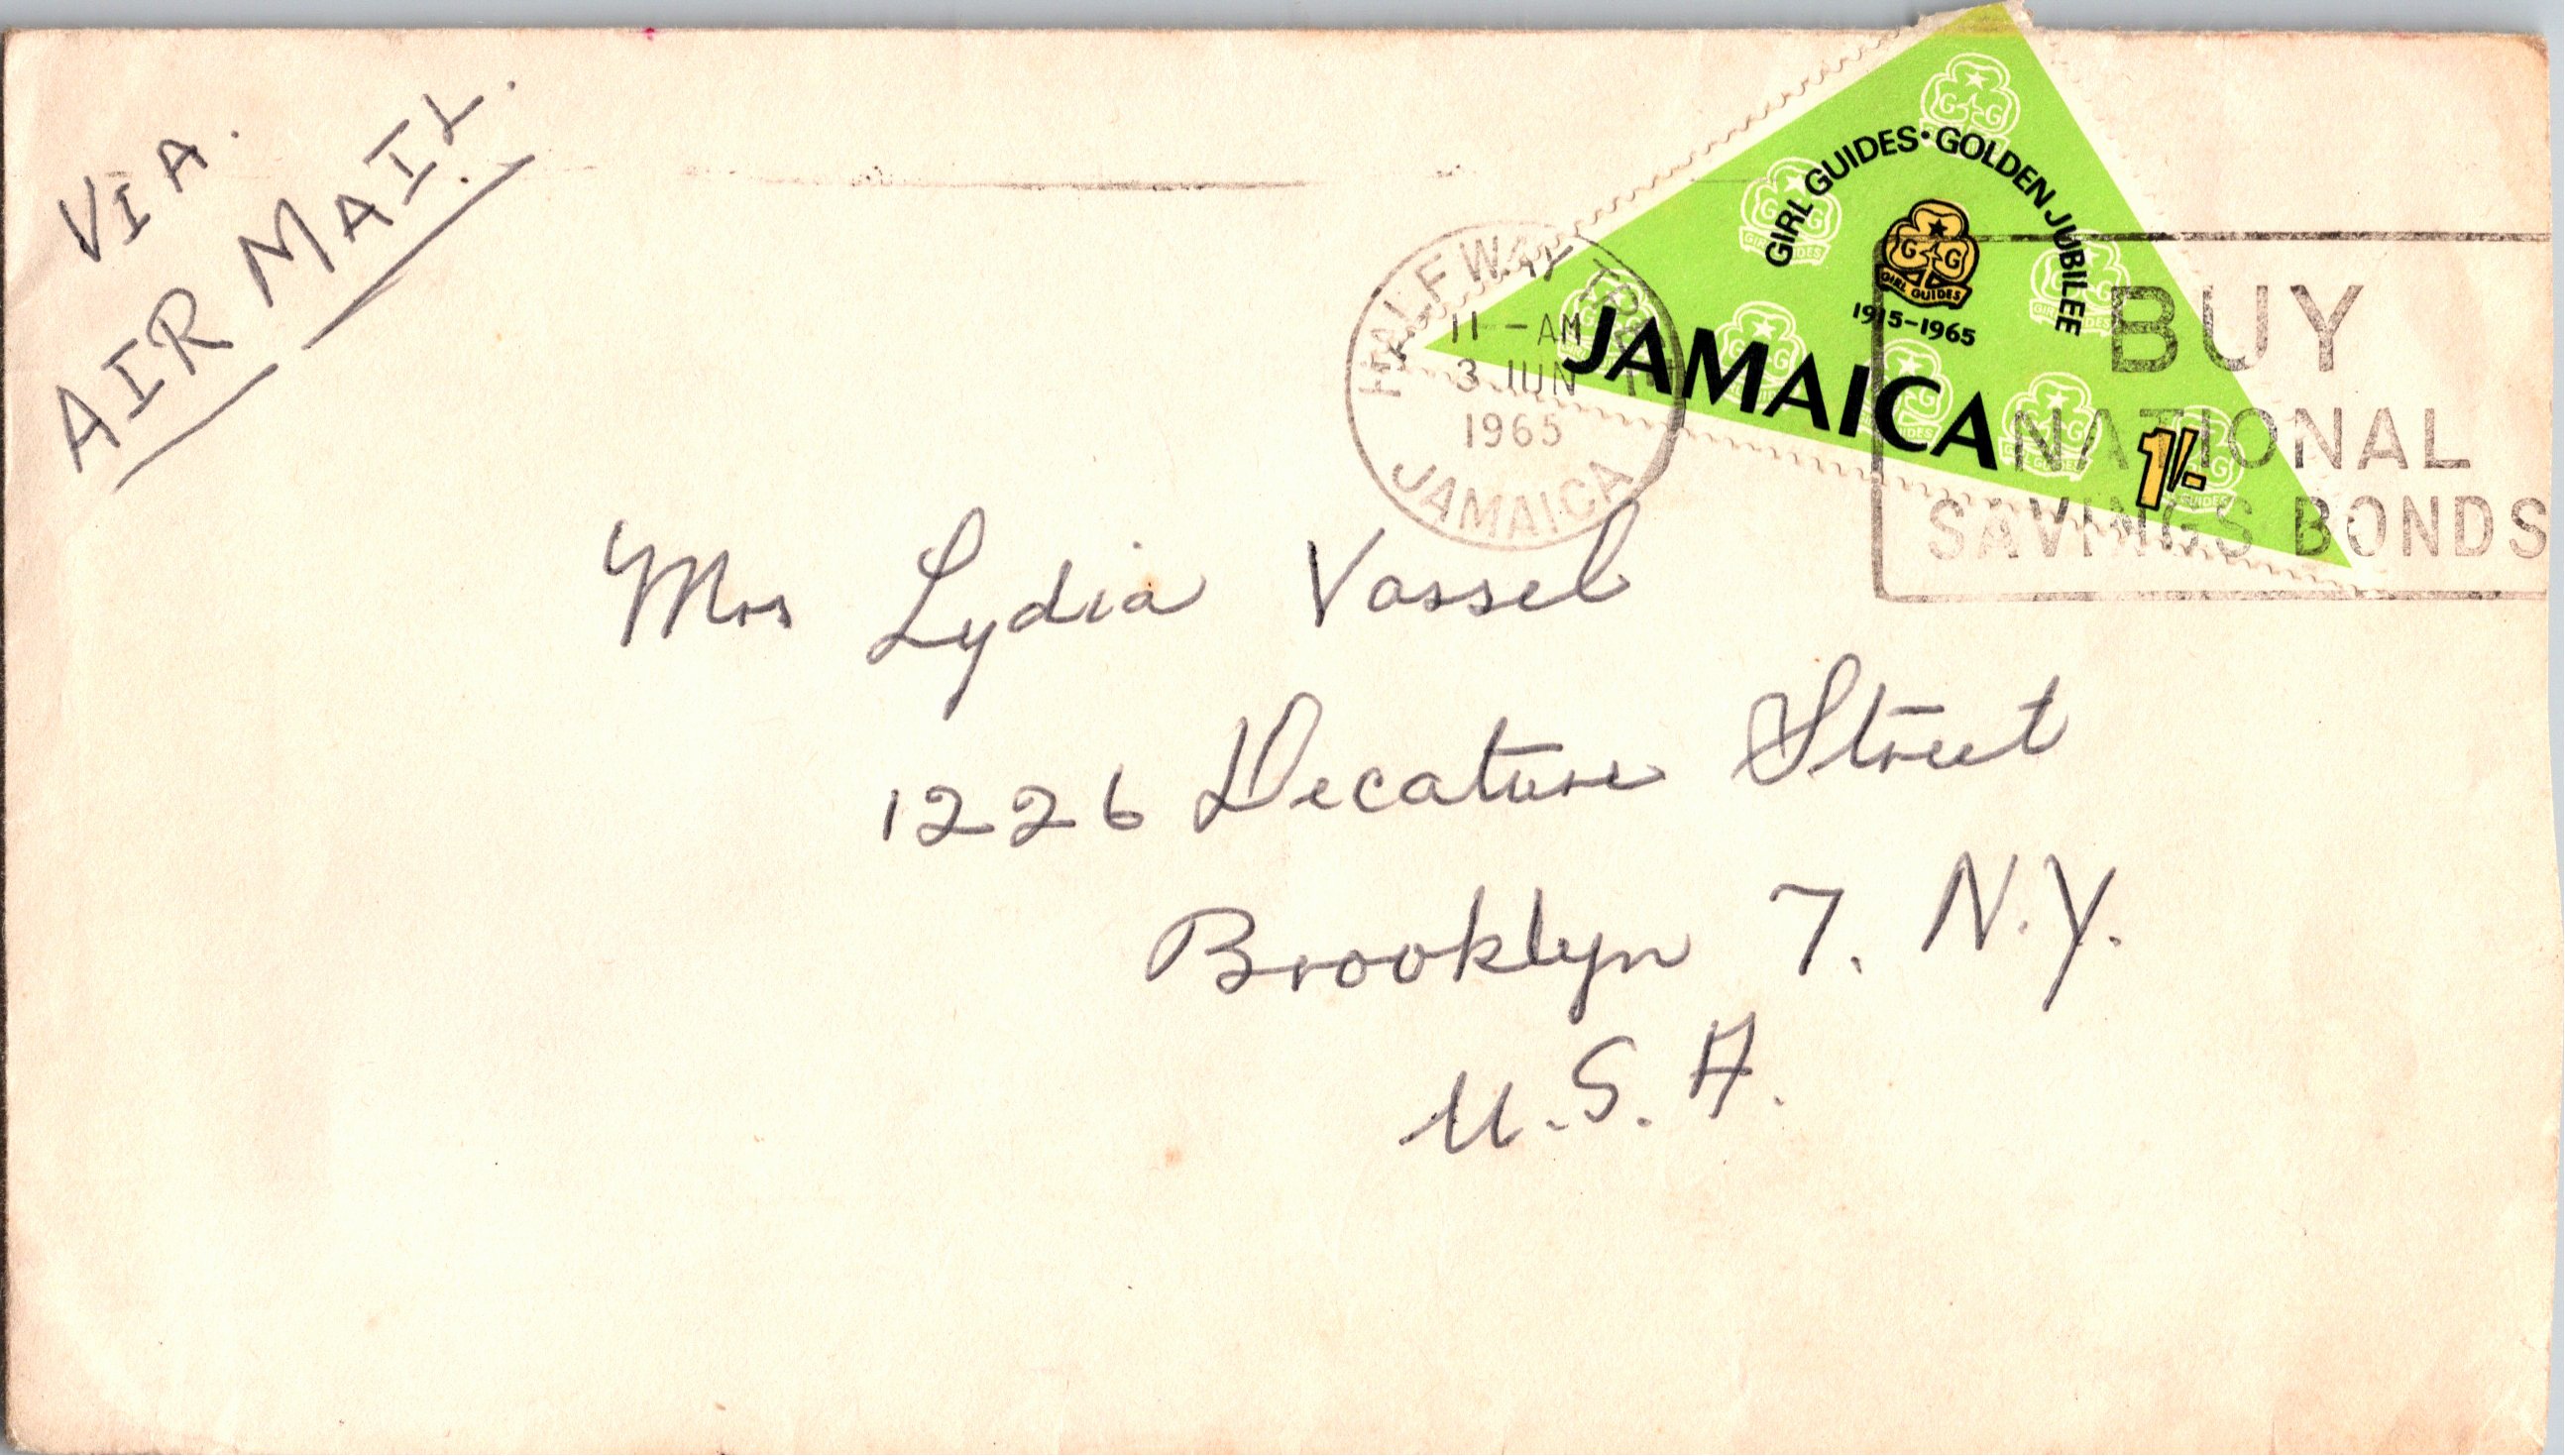 VIA.
AIR MAIL.
GIRL GUIDES · GOLDEN JUBILEE
GIRL GUIDES
1915-1965
JAMAICA
1/-
HALF WAY TREE
11-AM
3 JUN
1965
JAMAICA
BUY
NATIONAL
SAVINGS BONDS
Mrs Lydia Vassel
1226 Decature Street
Brooklyn 7. N.Y.
U.S.A.